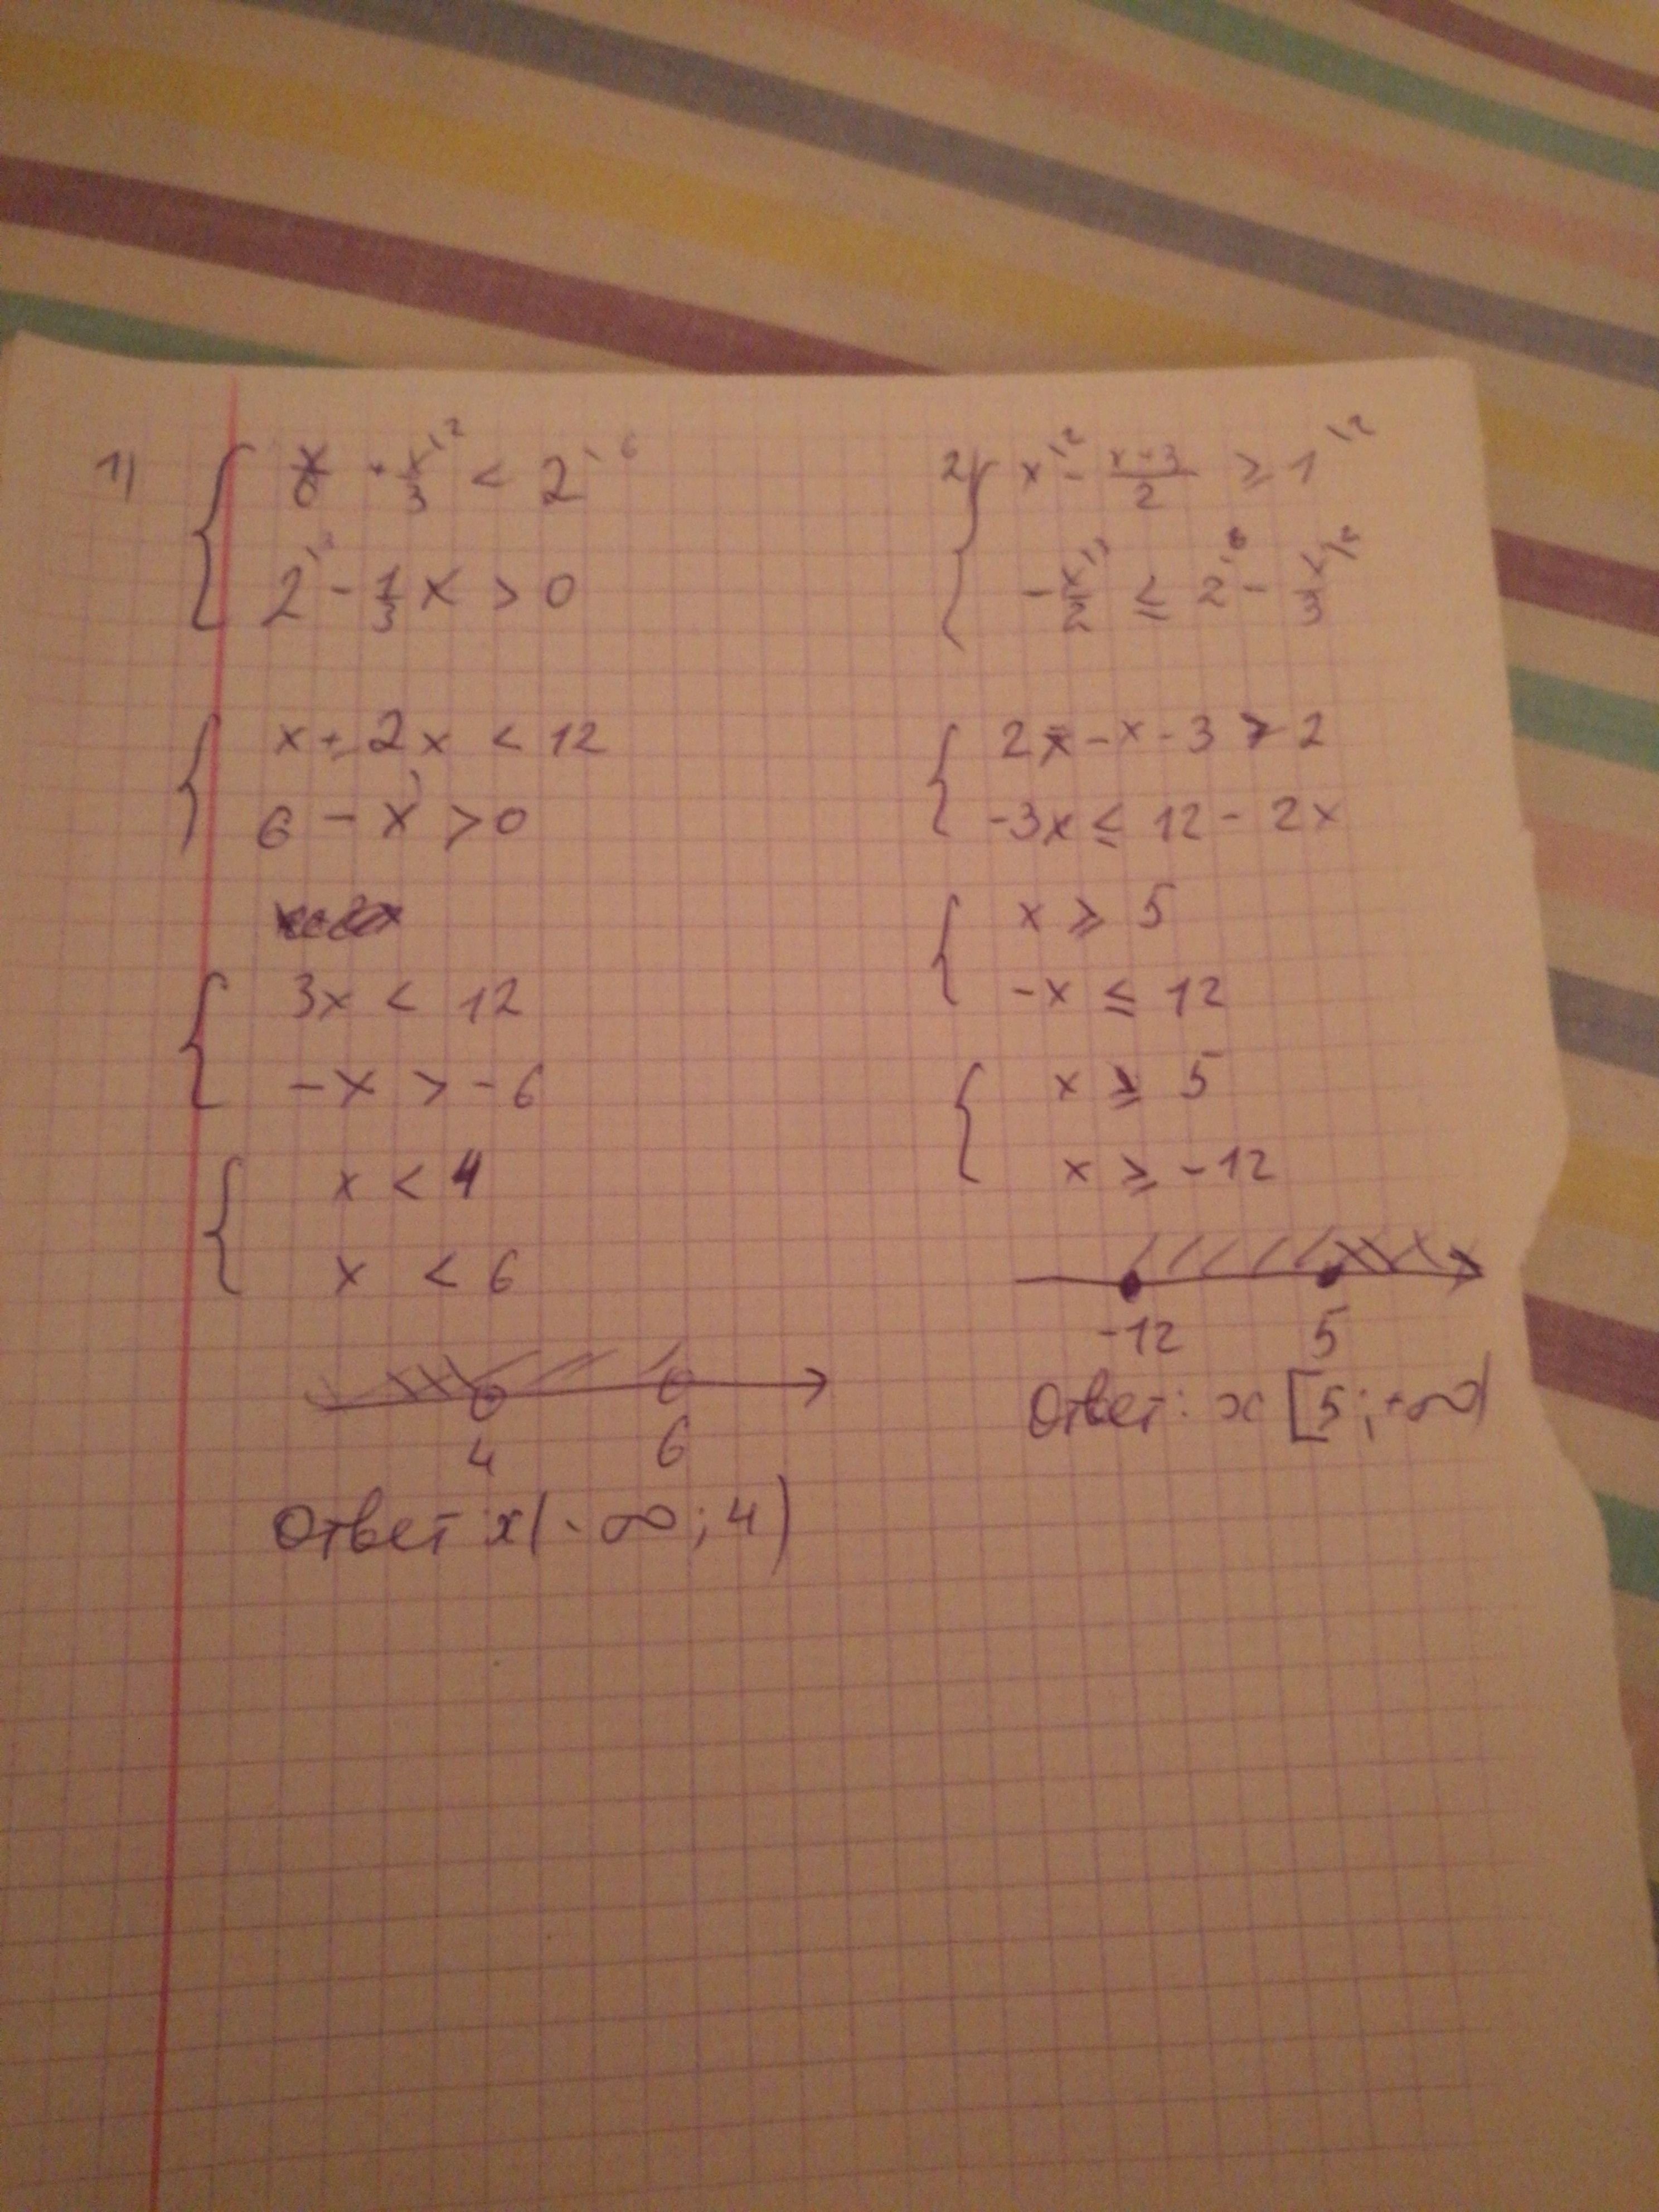 1) { x/6 + x/3 \2 < 2 \6
2 \3 - 1/3 x > 0
{ x + 2x < 12
6 - x > 0
{ 3x < 12
-x > -6
{ x < 4
x < 6
4 6
Ответ x(-∞; 4)
2) { x \2 - x+3/2 ≥ 1 \2
-x/2 \3 ≤ 2 \6 - x/3 \2
{ 2x - x - 3 ≥ 2
-3x ≤ 12 - 2x
{ x ≥ 5
-x ≤ 12
{ x ≥ 5
x ≥ -12
-12 5
Ответ: x [5; +∞)